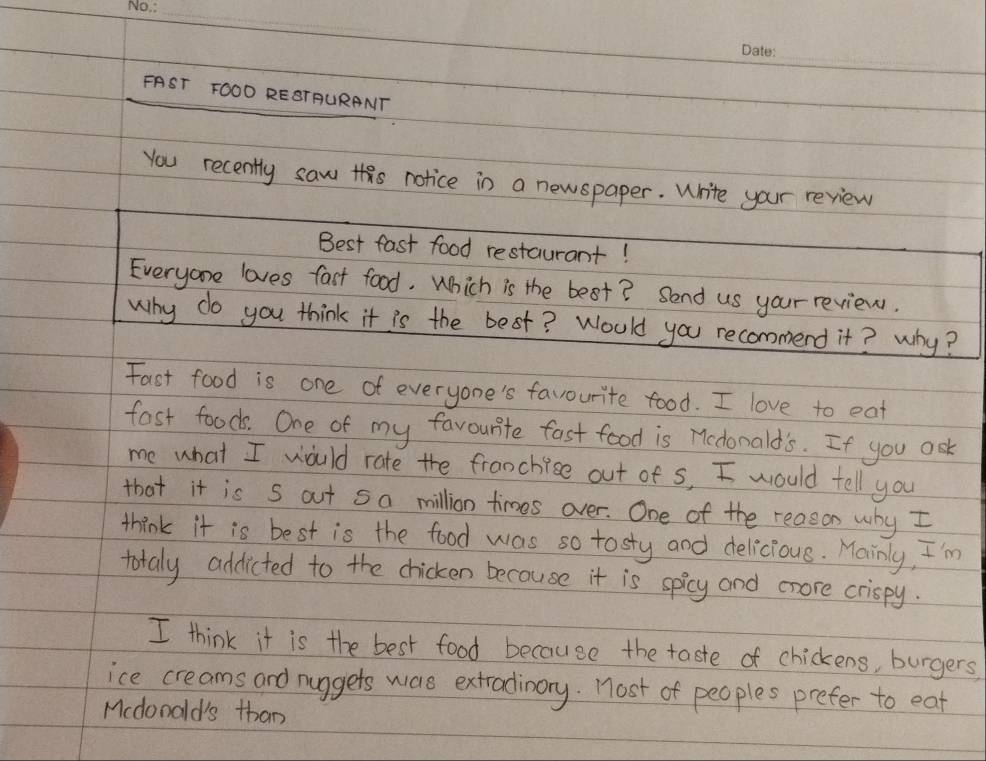 No.:
Date:
FAST FOOD RESTAURANT
You recently saw this notice in a newspaper. Write your review
Best fast food restaurant!
Everyone loves fast food. Which is the best? Send us your review.
Why do you think it is the best? Would you recommend it? why?
Fast food is one of everyone's favourite food. I love to eat
fast foods. One of my favourite fast food is Mcdonald's. If you ask
me what I would rate the franchise out of 5, I would tell you
that it is 5 out 5 a million times over. One of the reason why I
think it is best is the food was so tasty and delicious. Mainly, I'm
totaly addicted to the chicken because it is spicy and more crispy.
I think it is the best food because the taste of chickens, burgers,
ice creams and nuggets was extradinory. Most of peoples prefer to eat
Mcdonald's than